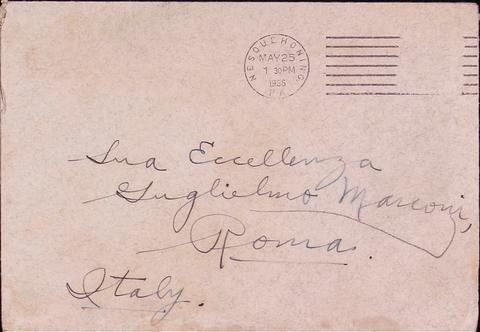 NESQUEHONING,
MAY 25
1 30 PM
1935
PA.
Sua Eccellenza
Guglielmo Marconi,
Roma.
Italy.